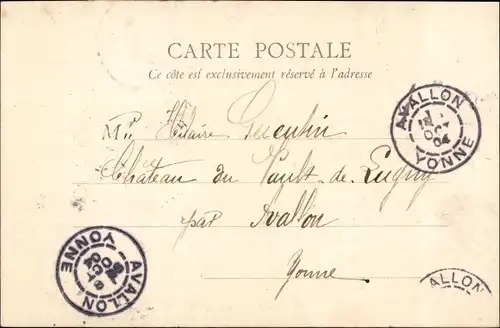 CARTE POSTALE
Ce côté est exclusivement réservé à l'adresse
AVALLON
OCT
04
YONNE
M. Hilaire
Château du Vault-de-Lugny
par Avallon
Yonne
AVALLON
OCT
04
YONNE
ALLON